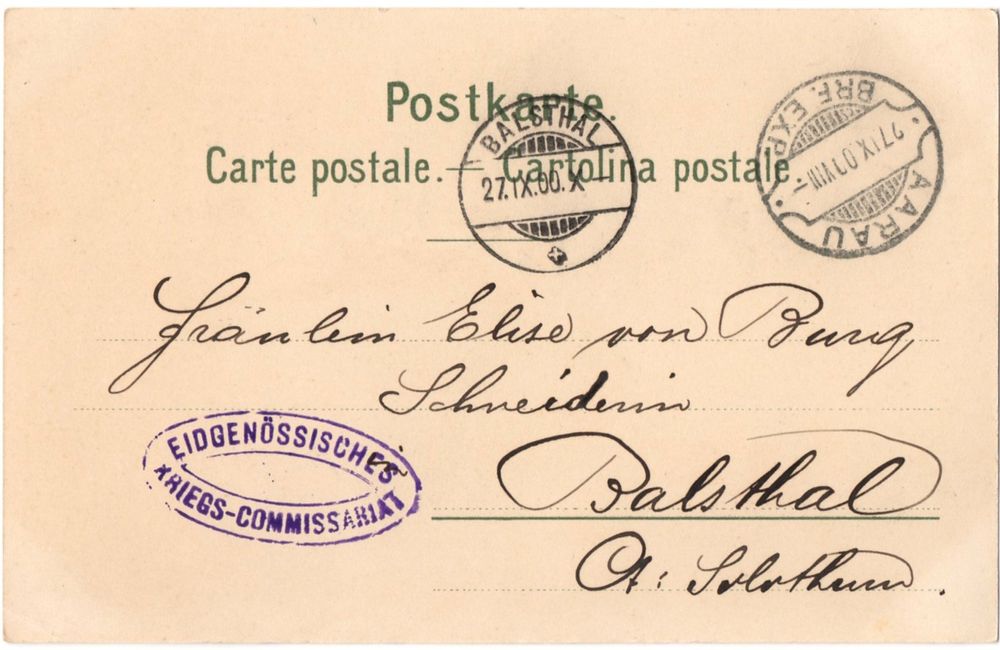 Postkarte.
Carte postale. — Cartolina postale.
BALSTHAL
27.IX.00.X—
AARAU
BRF. EXP.
27.IX.00.VIII—
Fräulein Elise von Burg
Schneiderin
in
Balsthal
Ct: Solothurn.
EIDGENÖSSISCHES
KRIEGS-COMMISSARIAT